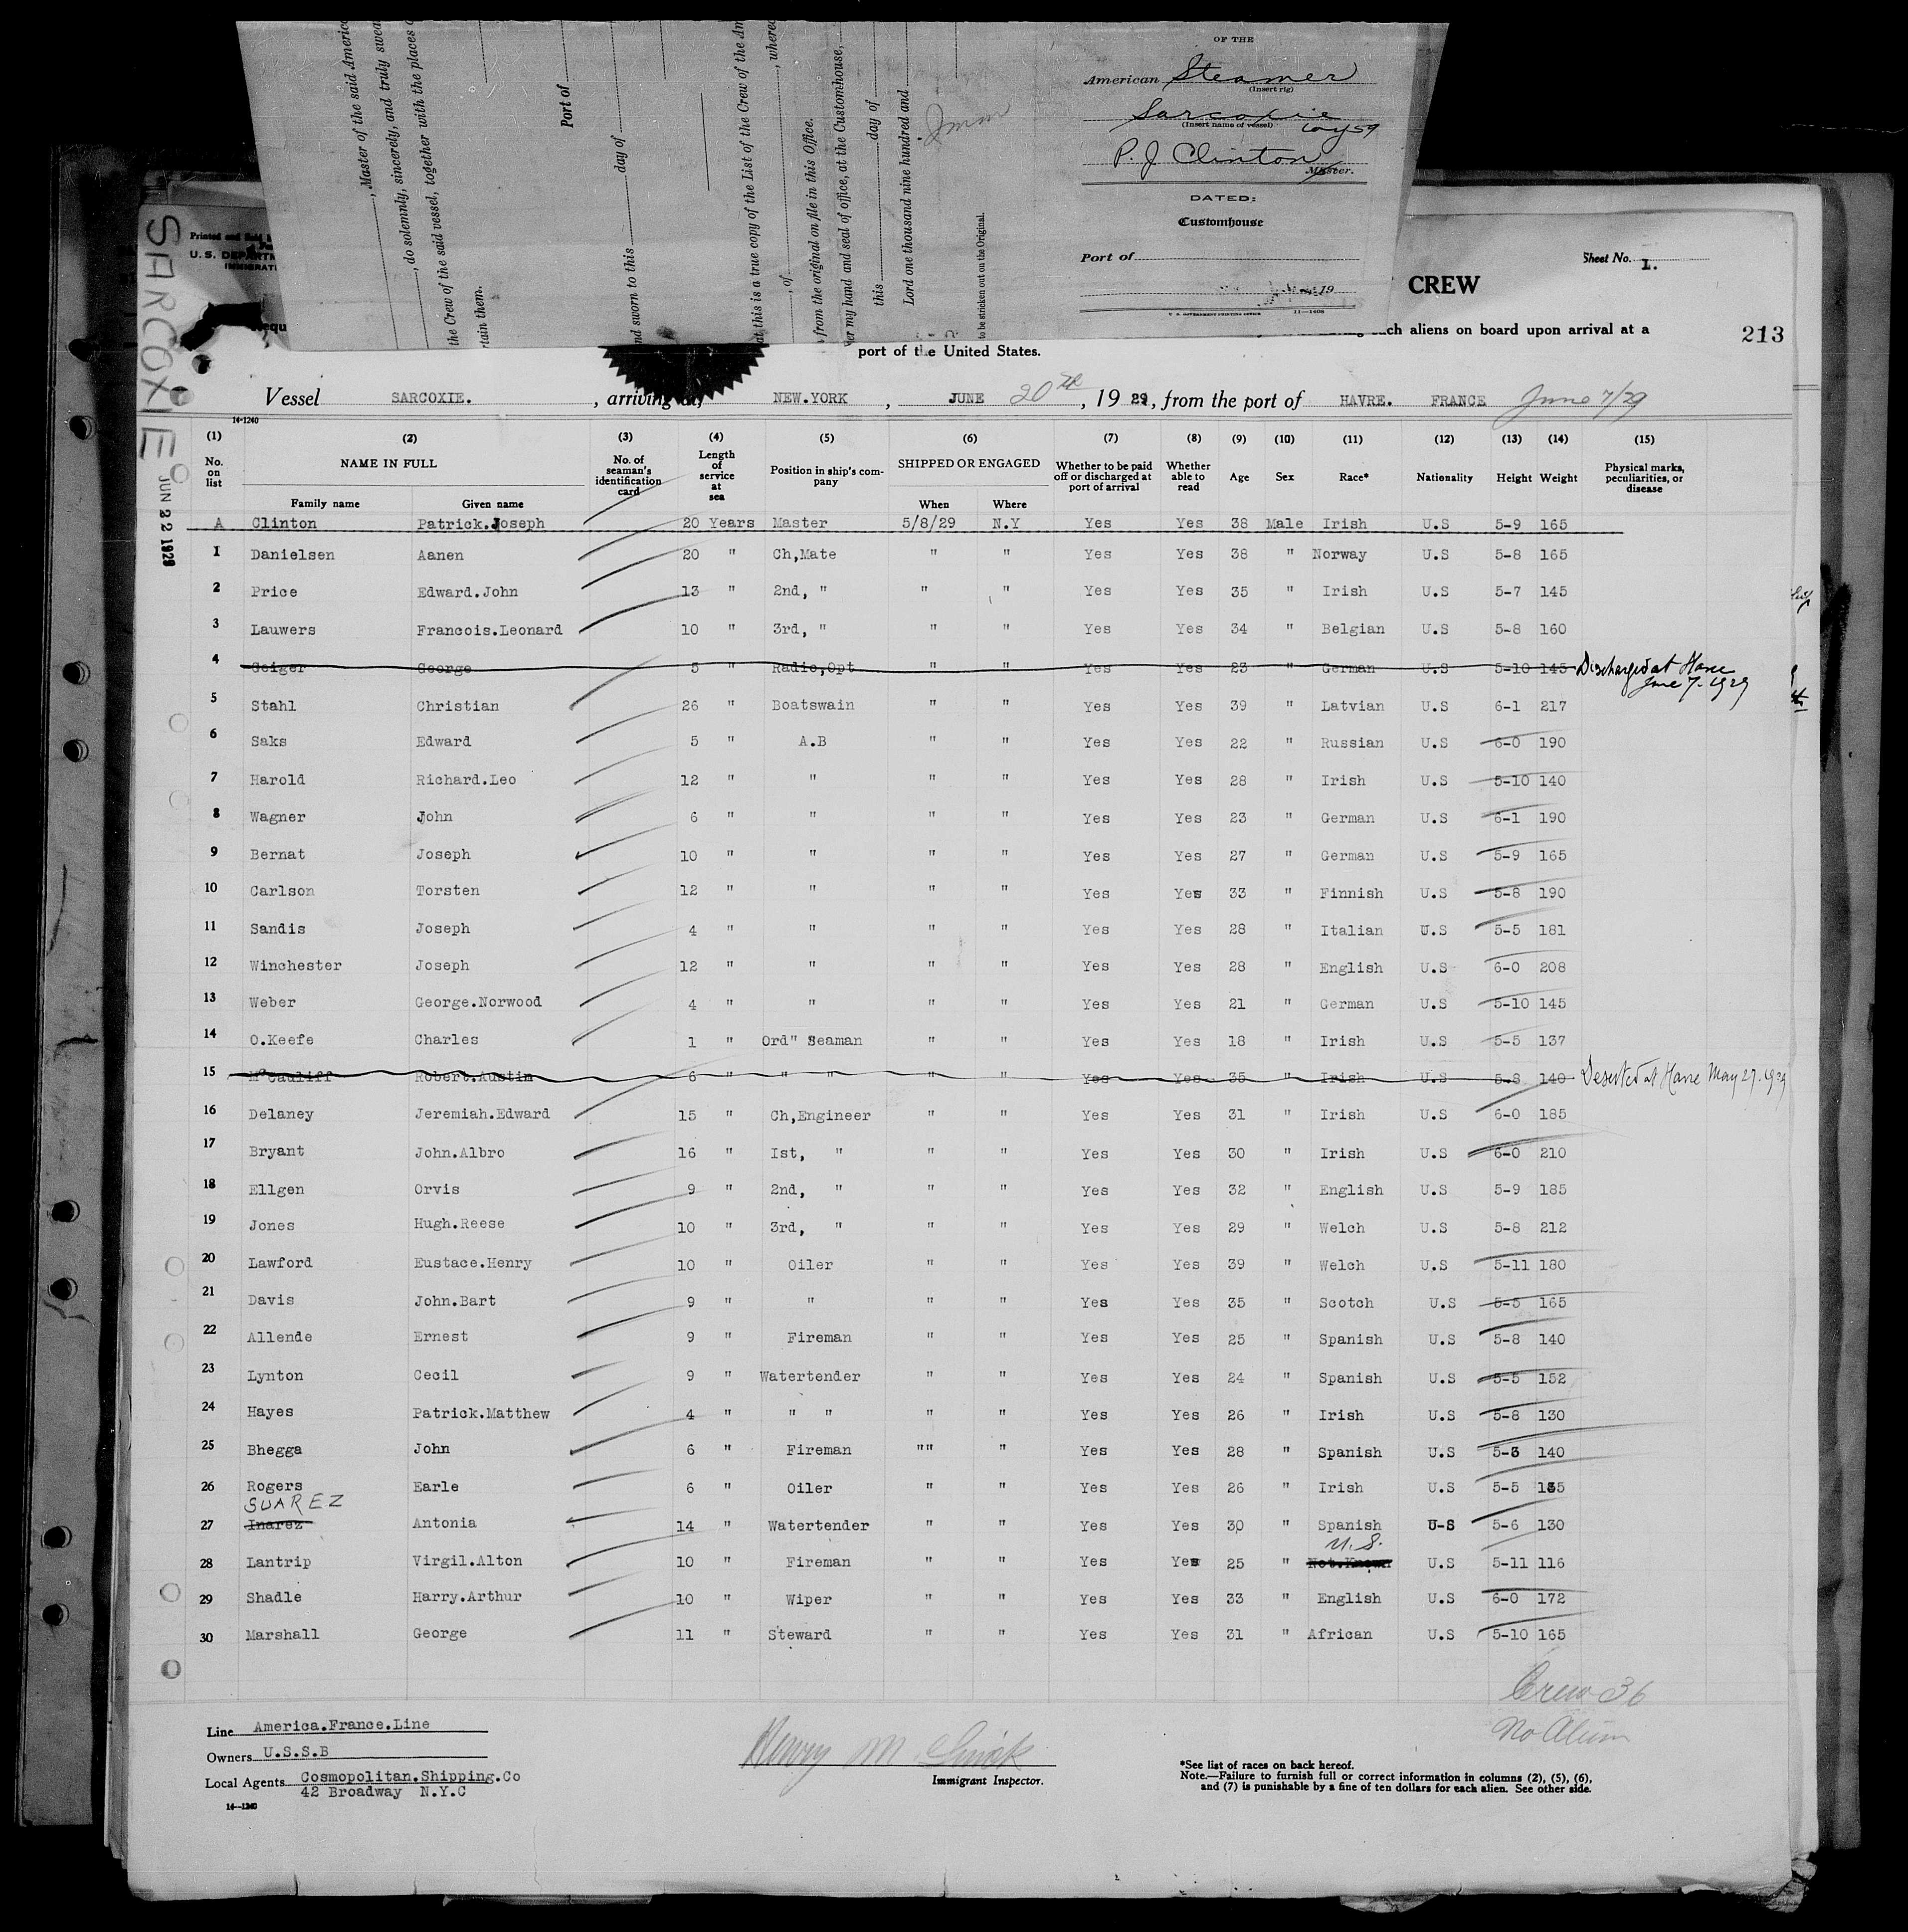 OF THE
American Steamer
(Insert rig)
Sarcoxie
(Insert name of vessel)
P. J. Clinton
Master.
DATED:
Customhouse
Port of
19
U. S. GOVERNMENT PRINTING OFFICE 11—1408
, Master of the said America
, do solemnly, sincerely, and truly swea
the Crew of the said vessel, together with the places
rtain them.
Port of
nd sworn to this day of
at this is a true copy of the List of the Crew of the Am
, of , where
from the original on file in this Office.
er my hand and seal of office, at the Customhouse,
this day of
Lord one thousand nine hundred and
to be stricken out on the Original.
SARCOXIE
JUN 22 1929
Printed and
U. S. DEPARTM
IMMIGRATI
equ
Sheet No. 1.
CREW
ch aliens on board upon arrival at a
213
port of the United States.
Vessel SARCOXIE. , arriving at NEW.YORK , JUNE 20th , 1929, from the port of HAVRE. FRANCE June 7/29
14-1240
(1) (2) (3) (4) (5) (6) (7) (8) (9) (10) (11) (12) (13) (14) (15)
No. on list NAME IN FULL No. of seaman's identification card Length of service at sea Position in ship's company SHIPPED OR ENGAGED Whether to be paid off or discharged at port of arrival Whether able to read Age Sex Race* Nationality Height Weight Physical marks, peculiarities, or disease
Family name Given name When Where
A Clinton Patrick.Joseph 20 Years Master 5/8/29 N.Y Yes Yes 38 Male Irish U.S 5-9 165
1 Danielsen Aanen 20 " Ch,Mate " " Yes Yes 38 " Norway U.S 5-8 165
2 Price Edward.John 13 " 2nd, " " " Yes Yes 35 " Irish U.S 5-7 145
3 Lauwers Francois.Leonard 10 " 3rd, " " " Yes Yes 34 " Belgian U.S 5-8 160
4 Geiger George 5 " Radio,Opt " " Yes Yes 23 " German U.S 5-10 145 Discharged at Havre
June 7-1929
5 Stahl Christian 26 " Boatswain " " Yes Yes 39 " Latvian U.S 6-1 217
6 Saks Edward 5 " A.B " " Yes Yes 22 " Russian U.S 6-0 190
7 Harold Richard.Leo 12 " " " " Yes Yes 28 " Irish U.S 5-10 140
8 Wagner John 6 " " " " Yes Yes 23 " German U.S 6-1 190
9 Bernat Joseph 10 " " " " Yes Yes 27 " German U.S 5-9 165
10 Carlson Torsten 12 " " " " Yes Yes 33 " Finnish U.S 5-8 190
11 Sandis Joseph 4 " " " " Yes Yes 28 " Italian U.S 5-5 181
12 Winchester Joseph 12 " " " " Yes Yes 28 " English U.S 6-0 208
13 Weber George.Norwood 4 " " " " Yes Yes 21 " German U.S 5-10 145
14 O.Keefe Charles 1 " Ord" Seaman " " Yes Yes 18 " Irish U.S 5-5 137
15 McCauliff Robert.Austin 6 " " " " " Yes Yes 35 " Irish U.S 5-8 140 Deserted at Havre May 27-1929
16 Delaney Jeremiah.Edward 15 " Ch,Engineer " " Yes Yes 31 " Irish U.S 6-0 185
17 Bryant John.Albro 16 " Ist, " " " Yes Yes 30 " Irish U.S 6-0 210
18 Ellgen Orvis 9 " 2nd, " " " Yes Yes 32 " English U.S 5-9 185
19 Jones Hugh.Reese 10 " 3rd, " " " Yes Yes 29 " Welch U.S 5-8 212
20 Lawford Eustace.Henry 10 " Oiler " " Yes Yes 39 " Welch U.S 5-11 180
21 Davis John.Bart 9 " " " " Yes Yes 35 " Scotch U.S 5-5 165
22 Allende Ernest 9 " Fireman " " Yes Yes 25 " Spanish U.S 5-8 140
23 Lynton Cecil 9 " Watertender " " Yes Yes 24 " Spanish U.S 5-5 152
24 Hayes Patrick.Matthew 4 " " " " " Yes Yes 26 " Irish U.S 5-8 130
25 Bhegga John 6 " Fireman "" " Yes Yes 28 " Spanish U.S 5-3 140
26 Rogers Earle 6 " Oiler " " Yes Yes 26 " Irish U.S 5-5 135
SUAREZ
27 Inarez Antonia 14 " Watertender " " Yes Yes 30 " Spanish U-S 5-6 130
U.S.
28 Lantrip Virgil.Alton 10 " Fireman " " Yes Yes 25 " Not.Known U.S 5-11 116
29 Shadle Harry.Arthur 10 " Wiper " " Yes Yes 33 " English U.S 6-0 172
30 Marshall George 11 " Steward " " Yes Yes 31 " African U.S 5-10 165
Crew 36
No Alien
Line America.France.Line
Owners U.S.S.B
Local Agents Cosmopolitan.Shipping.Co
42 Broadway N.Y.C
14—1240
Henry M.
Immigrant Inspector.
*See list of races on back hereof.
Note.—Failure to furnish full or correct information in columns (2), (5), (6),
and (7) is punishable by a fine of ten dollars for each alien. See other side.